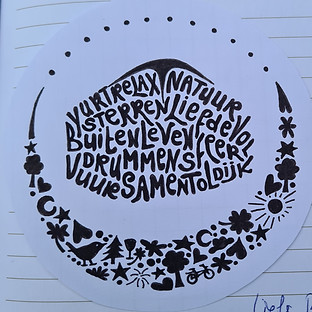 YURTRELAX NATUUR
STERREN LIEFDEVOL
BUITENLEVEN SFEER
DRUMMEN
VUUR SAMEN TOLDIJK